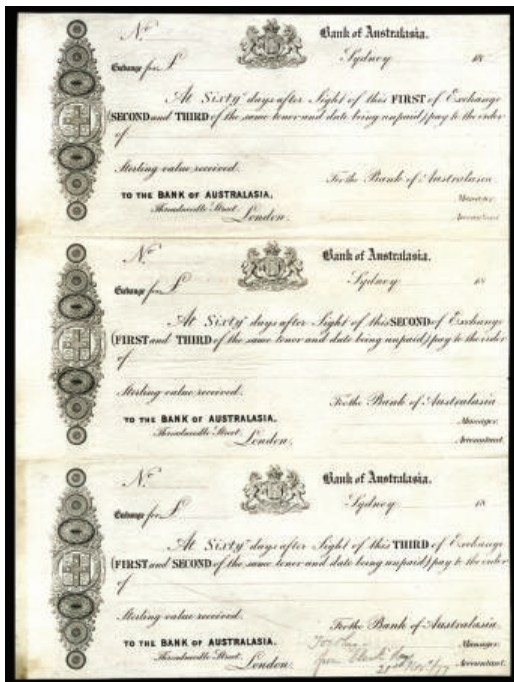 No
Bank of Australasia.
Sydney 18
Exchange for £
At Sixty days after Sight of this FIRST of Exchange
(SECOND and THIRD of the same tenor and date being unpaid) pay to the order
of
Sterling value received.
For the Bank of Australasia
TO THE BANK OF AUSTRALASIA,
Manager.
Threadneedle Street,
London.
Accountant.
No
Bank of Australasia.
Sydney 18
Exchange for £
At Sixty days after Sight of this SECOND of Exchange
(FIRST and THIRD of the same tenor and date being unpaid) pay to the order
of
Sterling value received.
For the Bank of Australasia
TO THE BANK OF AUSTRALASIA,
Manager.
Threadneedle Street,
London.
Accountant.
No
Bank of Australasia.
Sydney 18
Exchange for £
At Sixty days after Sight of this THIRD of Exchange
(FIRST and SECOND of the same tenor and date being unpaid) pay to the order
of
Sterling value received.
For the Bank of Australasia.
TO THE BANK OF AUSTRALASIA,
Manager.
Threadneedle Street,
from
London.
Accountant.